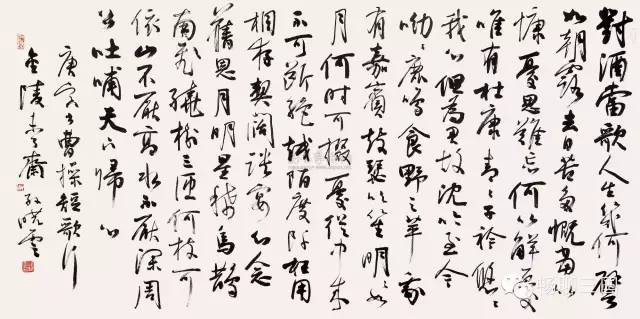 對酒當歌人生幾何譬
如朝露去日苦多慨當以
慷憂思難忘何以解憂
唯有杜康青〻子衿悠〻
我心但為君故沈吟至今
呦〻鹿鳴食野之苹我
有嘉賓鼓瑟吹笙明〻如
月何时可掇憂從中來
不可斷絕越陌度阡枉用
相存契闊談宴心念
舊恩月明星稀烏鵲
南飛繞樹三匝何枝可
依山不厭高水不厭深周
公吐哺天下歸心
庚寅書曹操短歌行
金陵未了齋孫曉雲
畅聊三国